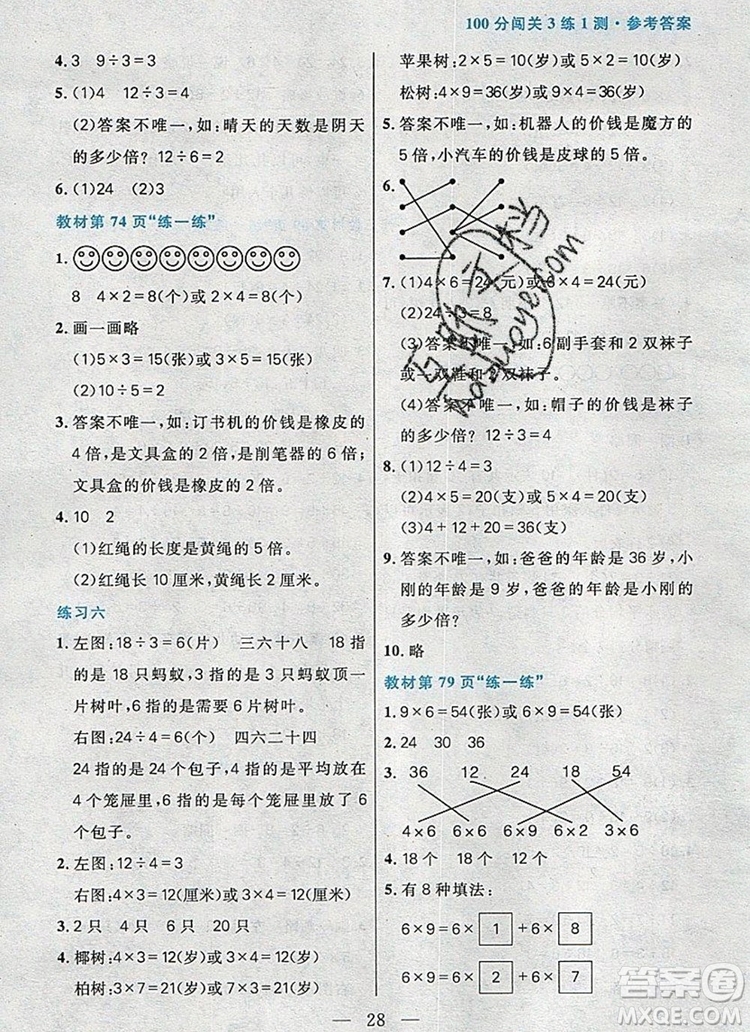 100分闯关3练1测·参考答案
4. 3 9
5. (1)4 12÷3=4
(2)答案不唯一,如:晴天的天数是阴天
的多少倍? 12÷6=2
6. (1)24 (2)3
教材第74页“练一练”
1.
8 4×2=8(个)或2×4=8(个)
2. 画一画略
(1)5×3=15(张)或3×5=15(张)
(2)10÷5=2
3. 答案不唯一,如:订书机的价钱是橡皮的
4倍,是文具盒的2倍,是削笔器的6倍;
文具盒的价钱是橡皮的2倍。
4. 10 2
(1)红绳的长度是黄绳的5倍。
(2)红绳长10厘米,黄绳长2厘米。
练习六
1. 左图:18÷3=6(片) 三六十八 18指
的是18只蚂蚁,3指的是3只蚂蚁顶一
片树叶,6指的是需要6片树叶。
右图:24÷4=6(个) 四六二十四
24指的是包子的总个数,4指的是平均
放在4个笼屉里,6指的是每个笼屉里有
6个包子。
2. 左图:12÷4=3
右图:4×3=12(厘米)或3×4=12(厘米)
3. 2只 4只 6只 20只
4. 椰树:4×3=12(岁)或3×4=12(岁)
柏树:3×7=21(岁)或7×3=21(岁)
苹果树:2×5=10(岁)或5×2=10(岁)
松树:4×9=36(岁)或9×4=36(岁)
5. 答案不唯一,如:机器人的价钱是魔方的
5倍,小汽车的价钱是皮球的5倍。
6.
7. (1)4×6=24(元)或6×4=24(元)
(2)24÷3=8
(3)答案不唯一,如:6副手套和2双袜子
或一双鞋和2双袜子。
(4)答案不唯一,如:帽子的价钱是袜子
的多少倍? 12÷3=4
8. (1)12÷4=3
(2)4×5=20(支)或5×4=20(支)
(3)4+12+20=36(支)
9. 答案不唯一,如:爸爸的年龄是36岁,小
刚的年龄是9岁,爸爸的年龄是小刚的
多少倍? 36÷9=4
10. 略
教材第79页“练一练”
1. 9×6=54(张)或6×9=54(张)
2. 24 30 36
3. 36 12 24 18 54
4×6 6×6 9×6 6×2 3×6
4. 18个 18个
5. 有8种填法:
6×9=6×1+6×8
6×9=6×2+6×7
28
答案圈
MXQE.COM